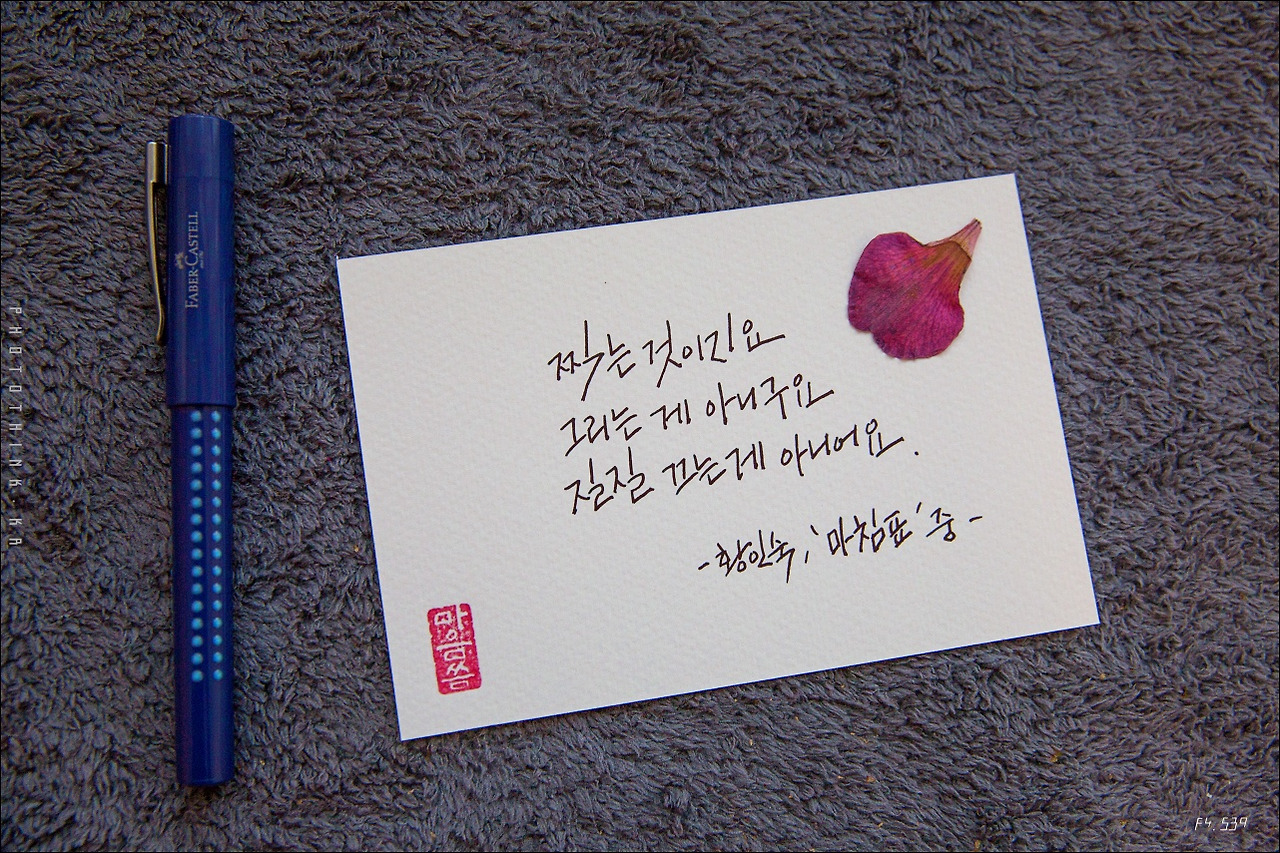 찍는 것이지요
그리는 게 아니구요
질질 끄는 게 아니에요.
- 황인숙, '마침표' 중 -
FABER-CASTELL
PHOTOTHINK.KA
F4.S39